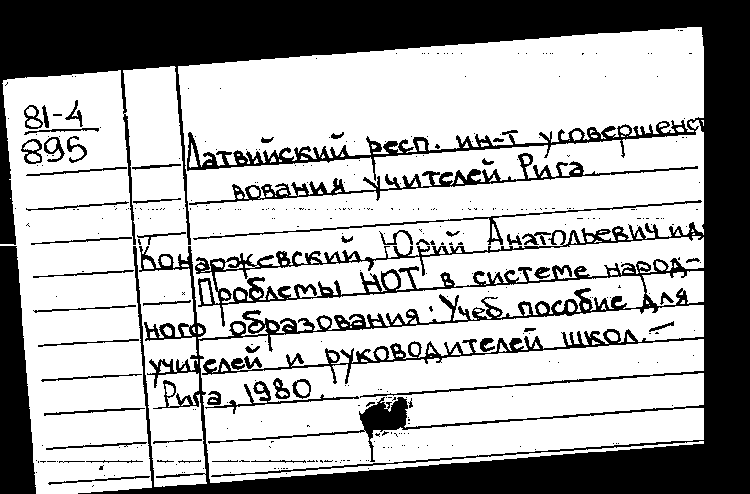 81-4
895
Латвийский респ. ин-т усовершенст
вования учителей. Рига.
Конаржевский, Юрий Анатольевич и др
Проблемы НОТ в системе народ-
ного образования: Учеб. пособие для
учителей и руководителей школ. –
Рига, 1980.